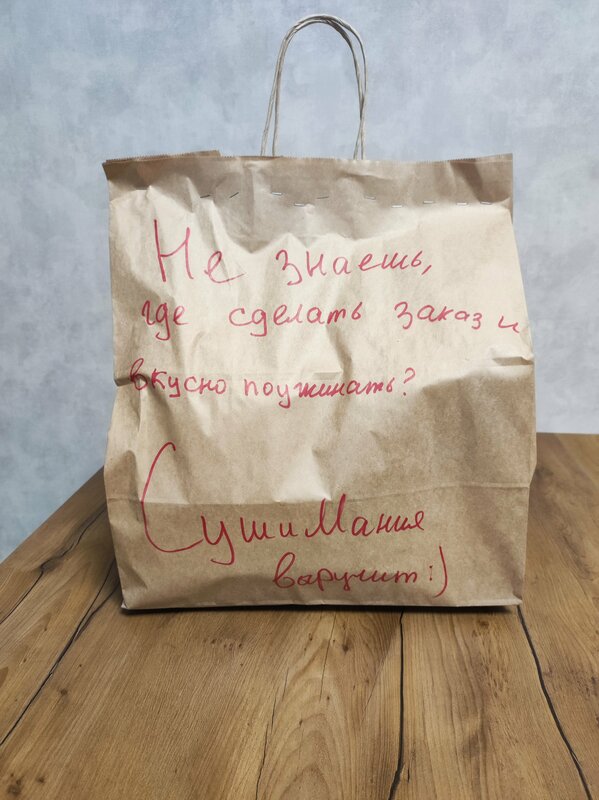 Не знаешь,
где сделать заказ и
вкусно поужинать?
СушиМания
выручит :)